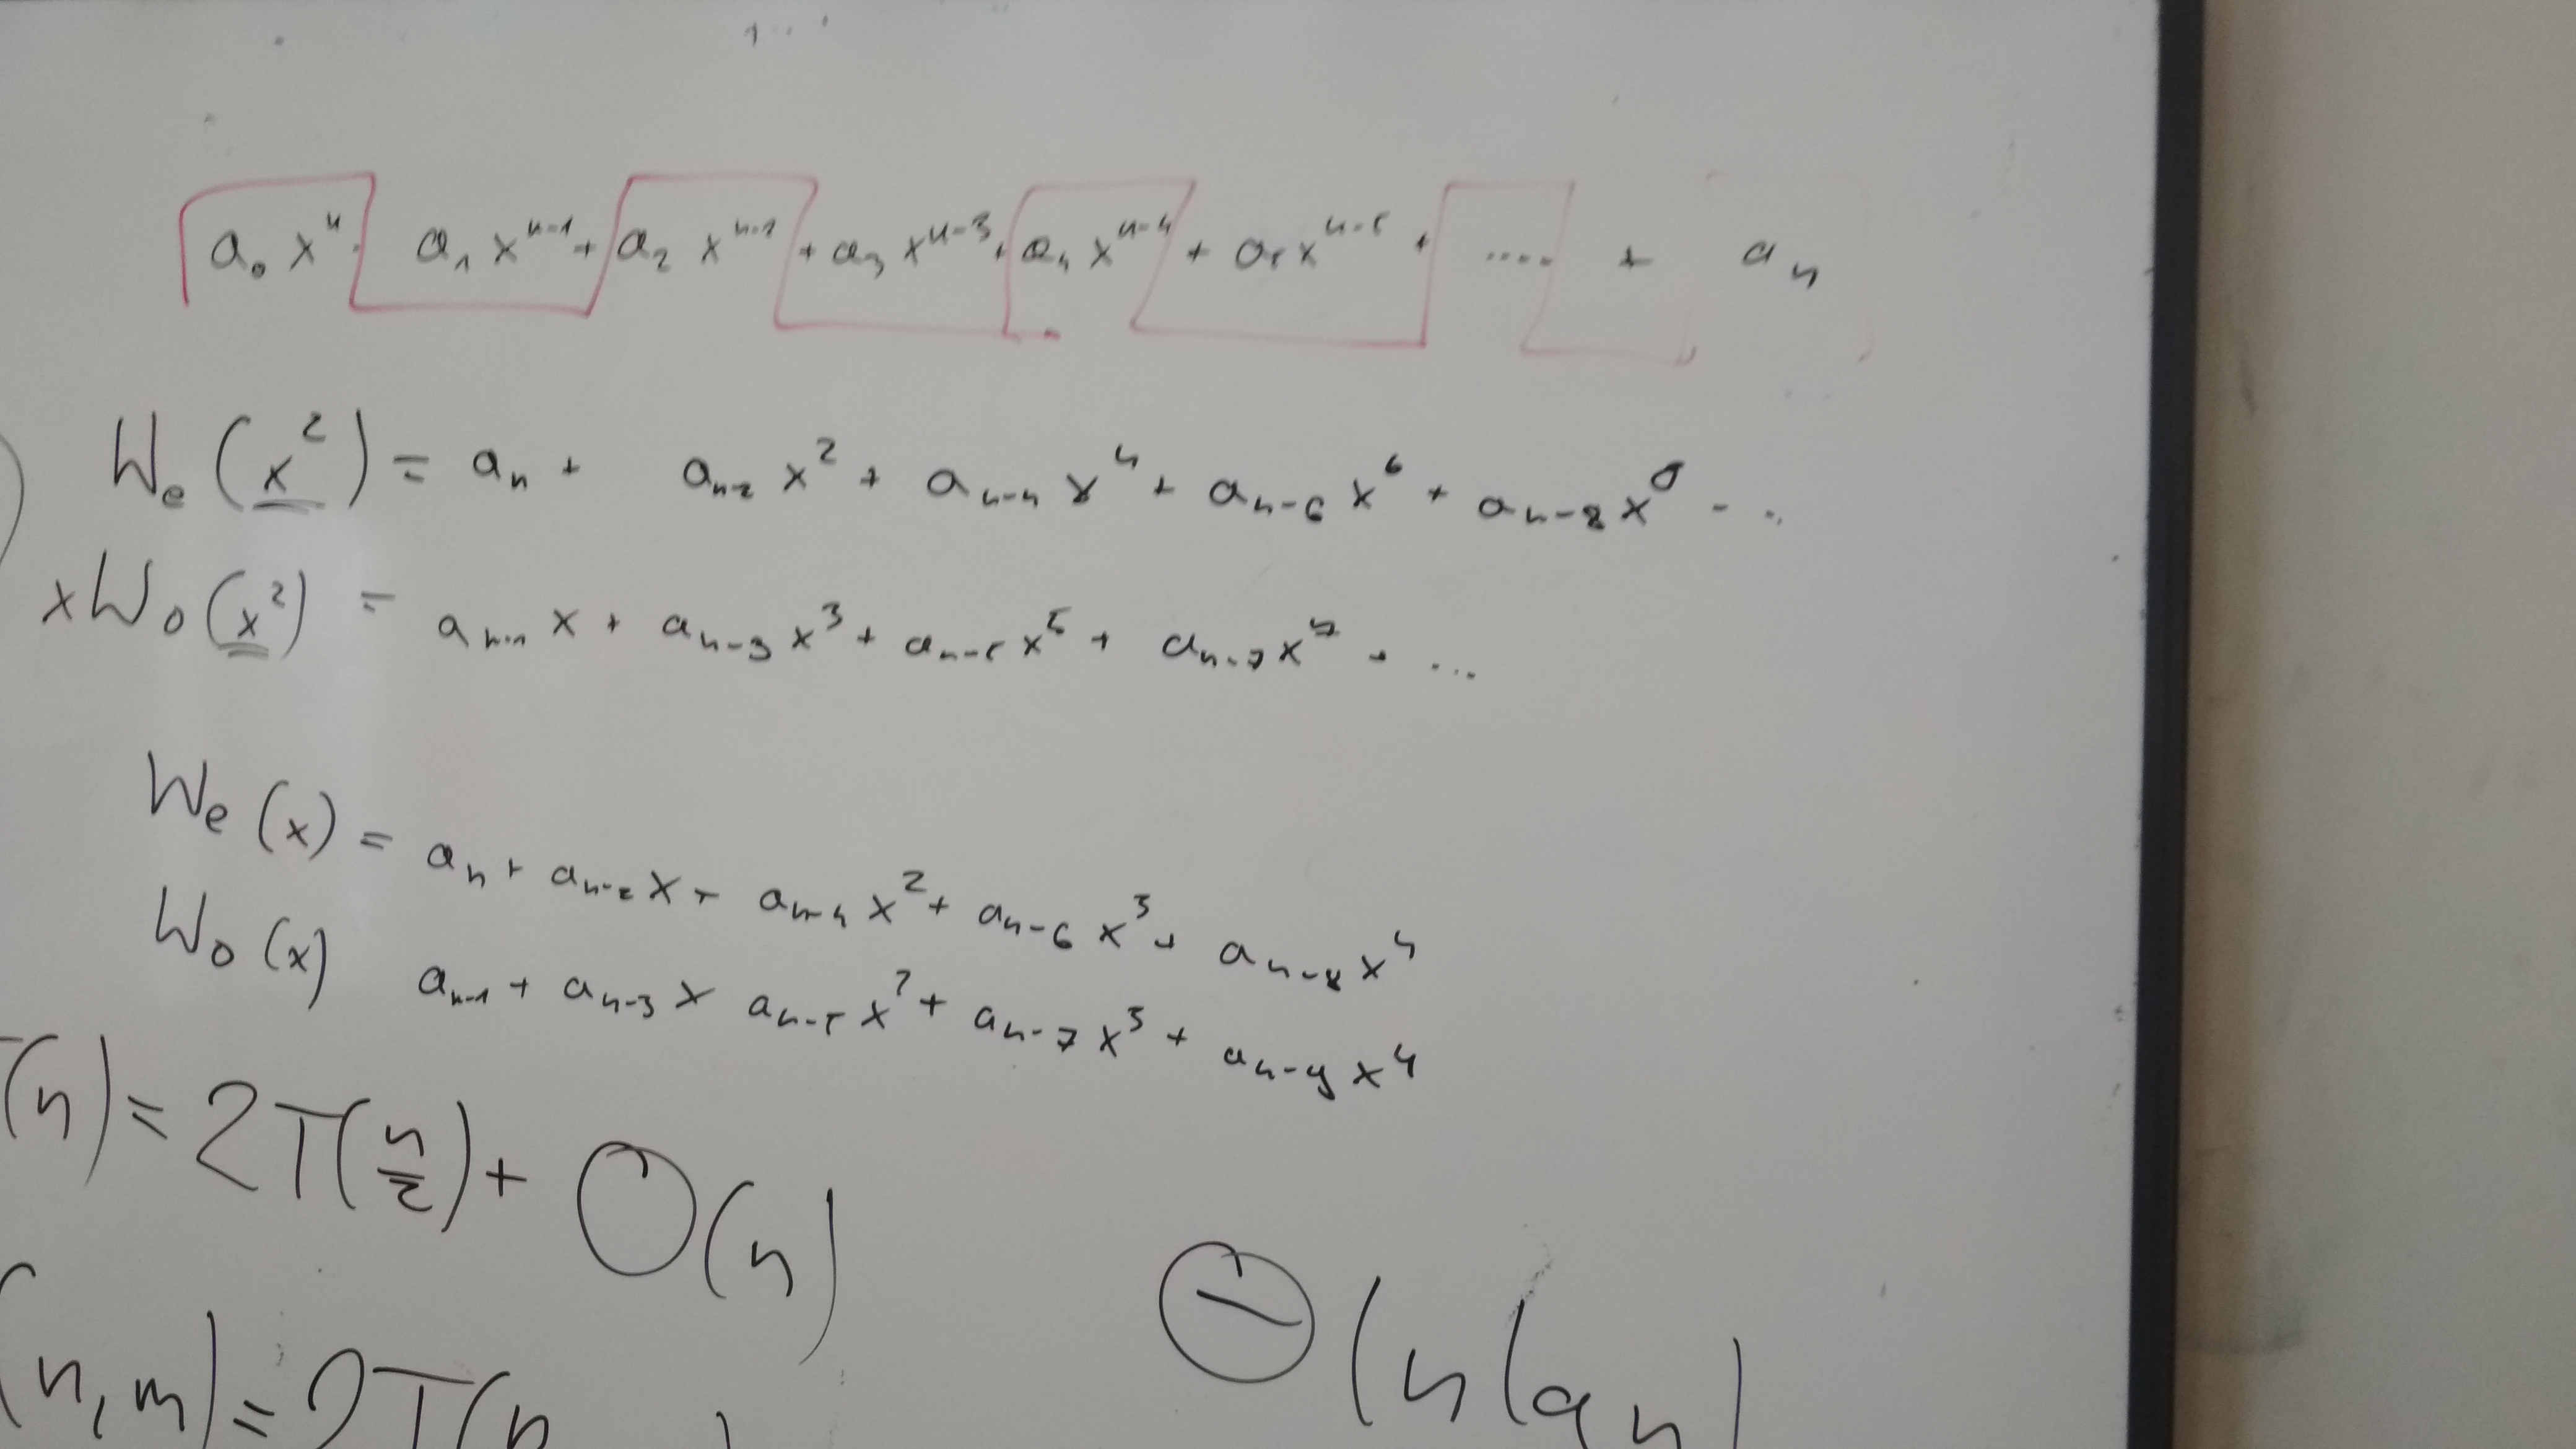 a₀ xⁿ · a₁ xⁿ⁻¹ + a₂ xⁿ⁻¹ + a₃ xⁿ⁻³ + a₄ xⁿ⁻⁴ + a₅ xⁿ⁻⁵ + ..... + aₙ
Wₑ (x²) = aₙ + aₙ₋₂ x² + aₙ₋₄ x⁴ + aₙ₋₆ x⁶ + aₙ₋₈ x⁸ - ..
x Wₒ (x²) = aₙ₋₁ x + aₙ₋₃ x³ + aₙ₋₅ x⁵ + aₙ₋₇ x⁷ + ...
Wₑ (x) = aₙ + aₙ₋₂ x + aₙ₋₄ x² + aₙ₋₆ x³ + aₙ₋₈ x⁴
Wₒ (x) aₙ₋₁ + aₙ₋₃ x aₙ₋₅ x² + aₙ₋₇ x³ + aₙ₋₉ x⁴
T(n) = 2T(n/2) + O(n)
Θ(n log n)
(n, m) = 2T(n